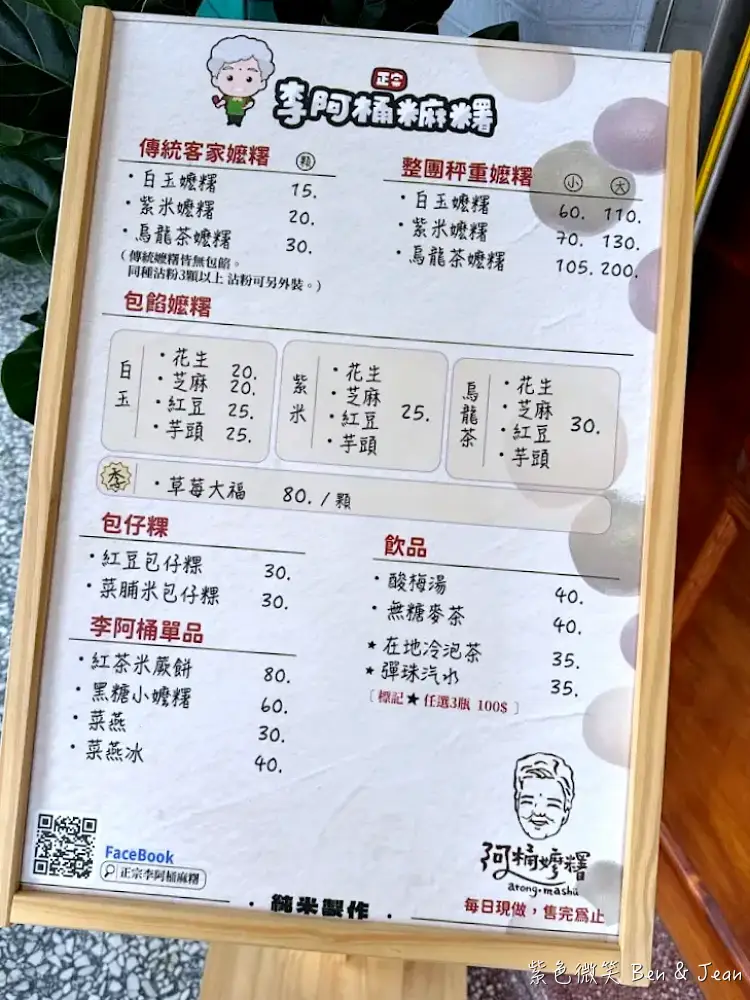 正宗
李阿桶麻糬
傳統客家嬤糬 顆
・白玉嬤糬 15.
・紫米嬤糬 20.
・烏龍茶嬤糬 30.
(傳統嬤糬皆無包餡。
同種沾粉3顆以上 沾粉可另外裝。)
整團秤重嬤糬 小 大
・白玉嬤糬 60. 110.
・紫米嬤糬 70. 130.
・烏龍茶嬤糬 105. 200.
包餡嬤糬
白玉
・花生 20.
・芝麻 20.
・紅豆 25.
・芋頭 25.
紫米
・花生
・芝麻
・紅豆
・芋頭
25.
烏龍茶
・花生
・芝麻
・紅豆
・芋頭
30.
季 ・草莓大福 80. / 顆
包仔粿
・紅豆包仔粿 30.
・菜脯米包仔粿 30.
李阿桶單品
・紅茶米蕨餅 80.
・黑糖小嬤糬 60.
・菜燕 30.
・菜燕冰 40.
飲品
・酸梅湯 40.
・無糖麥茶 40.
★在地冷泡茶 35.
★彈珠汽水 35.
〔標記★任選3瓶 100$ 〕
FaceBook
正宗李阿桶麻糬
・純米製作・
阿桶嬤糬
arong・mashu
每日現做，售完為止
紫色微笑 Ben & Jean